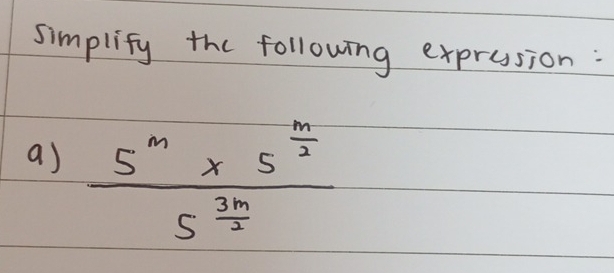 Simplify the following expression :
a) 5^m × 5^(m/2)
5^(3m/2)